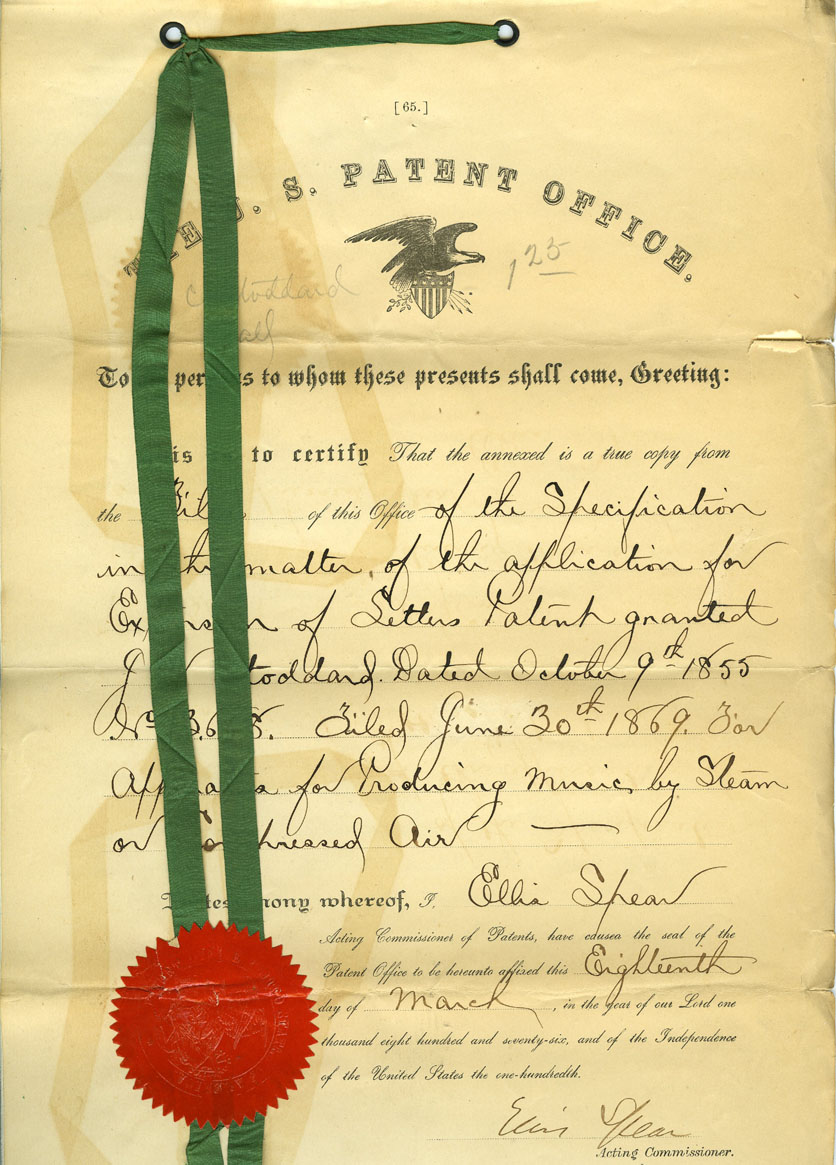 [65.]
THE U. S. PATENT OFFICE.
1 25
Stoddard
To persons to whom these presents shall come, Greeting:
is to certify That the annexed is a true copy from
the Files of this Office of the Specification
in the matter of the application for
Extension of Letters Patent granted
J Stoddard. Dated October 9th 1855
No Filed June 30th 1869. For
Apparatus for Producing Music by Steam
or Compressed Air
In testimony whereof, I, Ellis Spear
Acting Commissioner of Patents, have caused the seal of the
Patent Office to be hereunto affixed this Eighteenth
day of March, in the year of our Lord one
thousand eight hundred and seventy-six, and of the Independence
of the United States the one-hundredth.
Ellis Spear
Acting Commissioner.